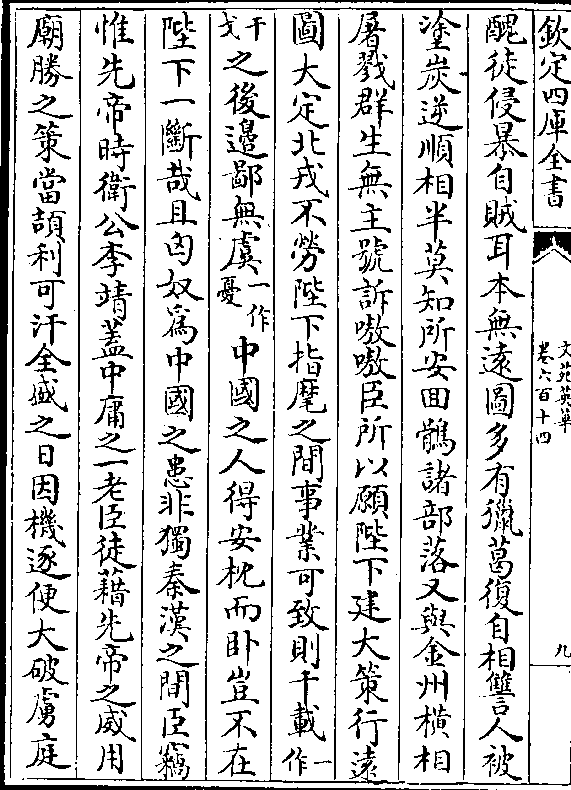 欽定四庫全書
文苑英華
卷六百十四
九
醜徒侵暴自賊耳本無遠圖多有獵葛復自相讐人被
塗炭逆順相半莫知所安回鶻諸部落又與金州橫相
屠戮群生無主號訴嗷嗷臣所以願陛下建大策行遠
圖大定北戎不勞陛下指麾之間事業可致則千載一作
干戈之後邊鄙無虞一作憂中國之人得安枕而卧豈不在
陛下一斷哉且匈奴為中國之患非獨秦漢之間臣竊
惟先帝時衛公李靖蓋中庸之一老臣徒藉先帝之威用
廟勝之策當頡利可汗全盛之日因機逐便大破虜庭